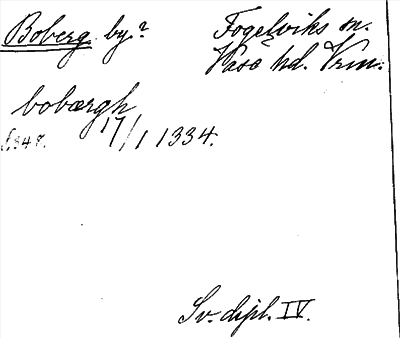 Boberg. by?
Fogelviks sn.
Vase hd. Vrm.
bobærgh
17/1 1334.
Sv. dipl. IV.